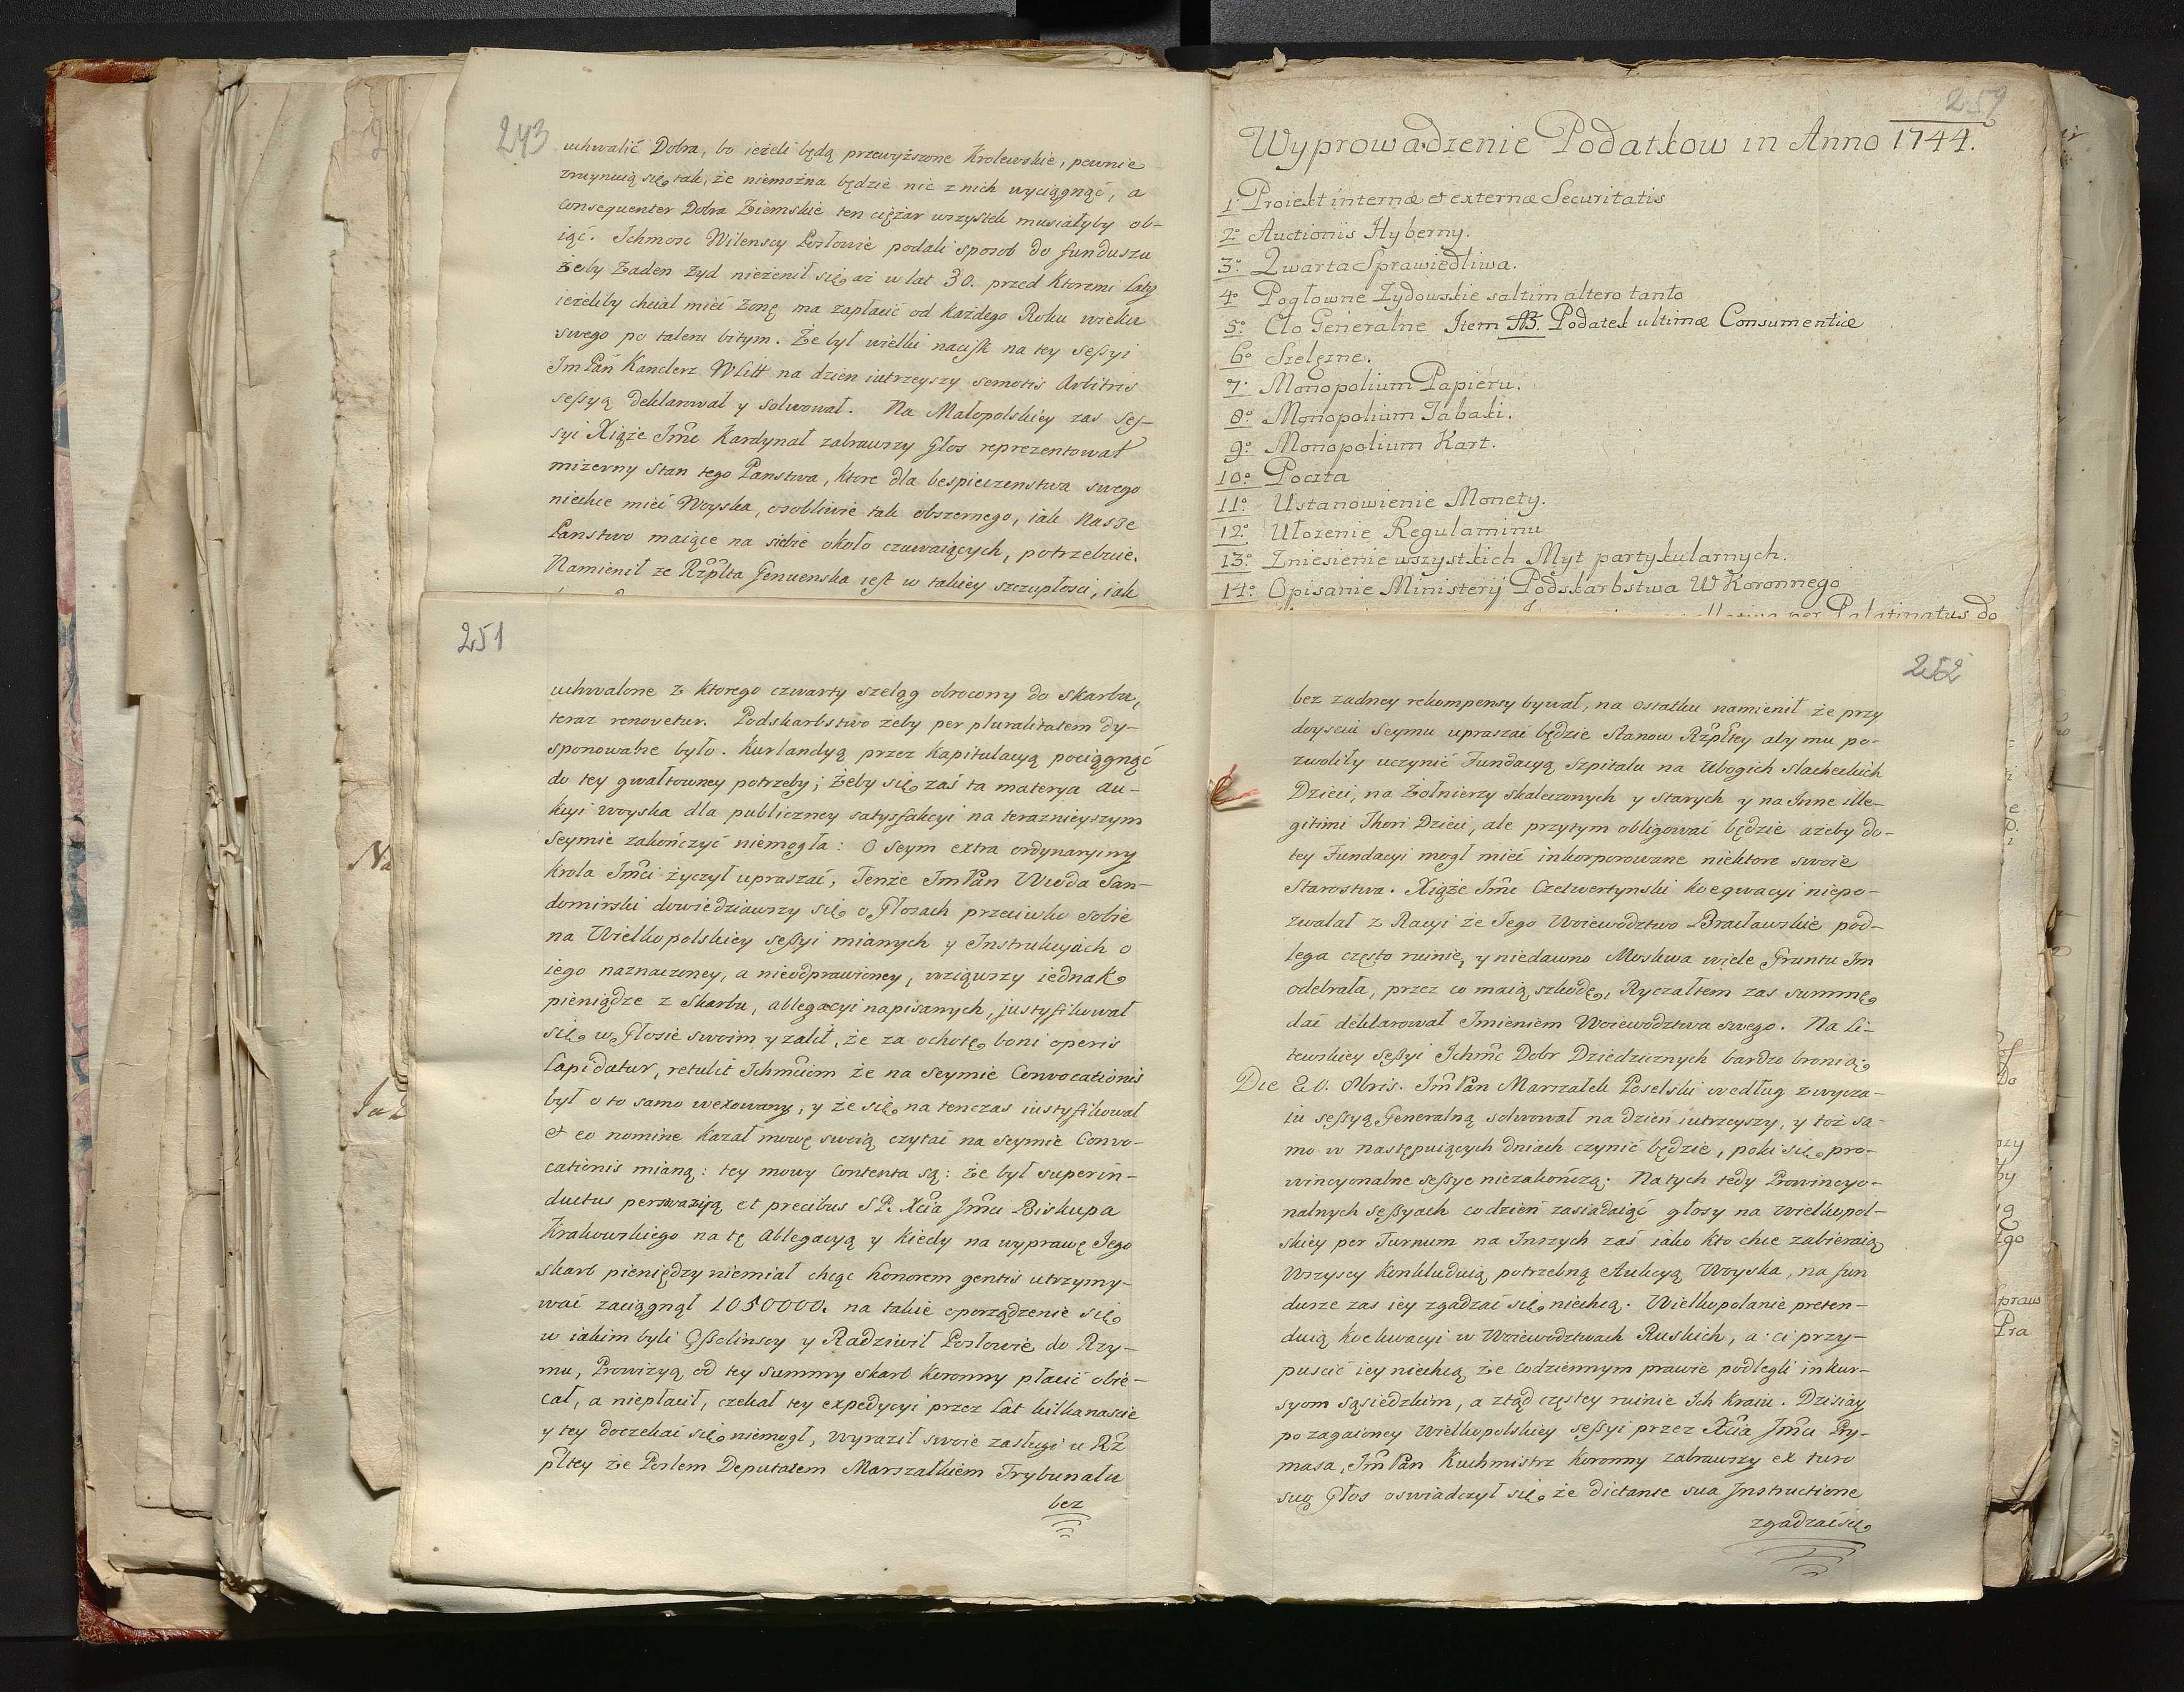 243
uchwalić Dobra, bo ieżeli będą przewyższone Krolewskie, pewnie
zruynuią się tak, że niemożna będzie nic z nich wyciągnąć, a
consequenter Dobra Ziemskie ten ciężar wszystek musiałyby ob-
iąć. Ichmosc Wilenscy Posłowie podali sposob do funduszu
żeby Żaden Żyd nieżenił się aż w lat 30. przed ktoremi laty
ieżeliby chciał mieć Żonę ma zapłacić od każdego Roku wieku
swego po taleru bitym. Że był wielki nacisk na tey seßyi
Jm Pan Kanclerz WLitt na dzien iutrzeyszy semotis Arbitris
seßyą deklarował y solwował. Na Małopolskiey zas ses-
syi Xiąże Jmc Kardynał zabrawszy Głos reprezentował
mizerny stan tego Panstwa, ktore dla bespieczenstwa swego
niechce mieć Woyska, osobliwie tak obszernego, iak Nasze
Panstwo maiące na siebie około czuwaiących, potrzebuie.
Namienił ze Rzplta Genuenska iest w takiey szczupłosci, iak
259
Wyprowadzenie Podatkow in Anno 1744.
1º Proiekt internæ et externæ Securitatis
2º Auctionis Hyberny.
3º Kwarta Sprawiedliwa.
4º Pogłowne Zydowskie saltim altero tanto
5º Clo Generalne Item NB. Podatek ultimæ Consumentiæ
6º Szelężne.
7º Monopolium Papieru.
8º Monopolium Tabaki.
9º Monopolium Kart.
10º Poczta
11º Ustanowienie Monety.
12º Ułożenie Regulaminu
13º Zniesienie wszystkich Myt partykularnych.
14º Opisanie Ministerij Podskarbstwa W Koronnego
per Palatinatus do
251
uchwalone z ktorego czwarty szeląg obrocony do skarbu,
teraz renovetur. Podskarbstwo żeby per pluralitatem dy-
sponowane było. Kurlandyą przez kapitulacyą pociągnąć
do tey gwałtowney potrzeby; żeby się zaś ta materya au-
kcyi woyska dla publiczney satysfakcyi na teraznieyszym
Seymie zakończyć niemogła: O Seym extra ordynaryiny
Krola Jmci życzył upraszać, Tenże JmPan Wwda San-
domirski dowiedziawszy się o Głosach przeciwko sobie
na Wielkopolskiey seßyi mianych y Instrukcyach o
iego naznaczoney, a nieodprawioney, wziąwszy iednak
pieniądze z Skarbu, ablegacyi napisanych, justyfikował
się w Głosie swoim y żalił, że za ochotę boni operis
Lapidatur, retulit Ichmciom że na Seymie Convocationis
był o to samo wexowany, y że się na tenczas iustyfikował
et eo nomine kazał mowę swoią czytać na seymie Convo-
cationis mianą: tey mowy contenta są: że był superin-
ductus perswazyą et precibus SP. Xcia Jmci Biskupa
Krakowskiego na tę Ablegacyą y kiedy na wyprawę Jego
skarb pieniędzy niemiał chcąc honorem gentis utrzymy-
wać zaciągnął 1050000. na takie oporządzenie się
w iakim byli Oßolinscy y Radziwił Posłowie do Rzy-
mu, Prowizyą od tey summy skarb koronny płacić obie-
cał, a niepłacił, czekał tey expedycyi przez lat kilkanascie
y tey doczekać się niemogł, wyraził swoie zasługi u Rz
pltey że Posłem Deputatem Marszałkiem Trybunału
bez
252
bez zadney rekompensy bywał, na ostatku namienił że przy
doysciu Seymu upraszać będzie Stanow Rzpltey aby mu po-
zwoliły uczynić Fundacyą szpitalu na Ubogich slacheckich
Dzieci, na Żołnierzy skaleczonych y starych y na Inne ille-
gitimi Thori Dzieci, ale przytym obligować będzie ażeby do-
tey Fundacyi mogł mieć inkorporowane niektore swoie
Starostwa. Xiąże Jmc Czetwertynski koeqwacyi niepo-
zwalał z Racyi że Jego Woiewodztwo Bracławskie pod-
lega często ruinie, y niedawno Moskwa wiele Gruntu Im
odebrała, przez co maią szkodę, Ryczałtem zas summę
dać deklarował Imieniem Woiewodztwa swego. Na Li-
tewskiey seßyi Ichmc Dobr Dziedzicznych bardzo bronią.
Die 20. 8bris. JmPan Marszałek Poselski według zwycza-
iu seßyą Generalną solwował na dzień iutrzeyszy, y toż sa-
mo w następuiących dniach czynić będzie, poki się pro-
wincyonalne seßye niezakończą. Na tych tedy Prowincyo-
nalnych seßyach co dzień zasiadaiąć głosy na Wielkopol-
skiey per Turnum na Inszych zaś iako kto chce zabieraią
Wszyscy konkluduią potrzebną Aukcyą Woyska, na fun
dusze zas iey zgadzać się niechcą. Wielkopolanie preten-
duią koekwacyi w Woiewodztwach Ruskich, a ci przy-
puscić iey niechcą że codziennym prawie podlegli inkur-
syom sąsiedzkim, a ztąd częstey ruinie Ich kraiu. Dzisiay
po zagaioney Wielkopolskiey seßyi przez Xcia Jmci Pry-
masa, JmPan Kuchmistrz Koronny zabrawszy ex turo
suo Głos oswiadczył się że dictante sua Instructione
zgadzać się